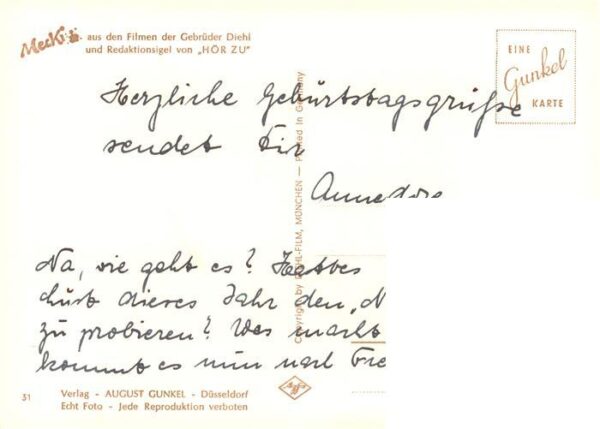 Mecki aus den Filmen der Gebrüder Diehl
und Redaktionsigel von „HÖR ZU"
EINE
Gunkel
KARTE
Herzliche Geburtstagsgrüße
sendet Dir
Copyright by DIEHL-FILM, MÜNCHEN — Printed in Germany
Na, wie geht es?
dieses Jahr den
zu probieren? Was macht
kommt es nun
31
Verlag - AUGUST GUNKEL - Düsseldorf
Echt Foto - Jede Reproduktion verboten